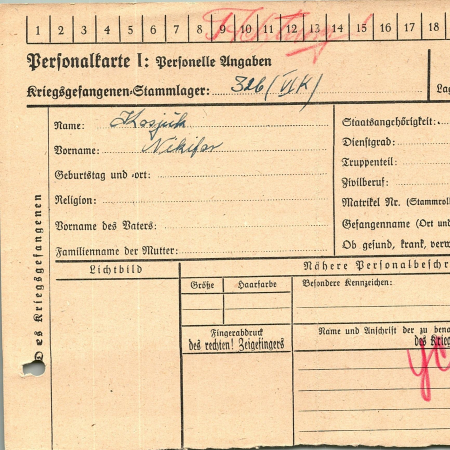 1 2 3 4 5 6 7 8 9 10 11 12 13 14 15 16 17 18
Personalkarte I: Personelle Angaben
Kriegsgefangenen-Stammlager: 326/(VIK)
Lag
Name: Kosjuk
Vorname: Nikifor
Geburtstag und -ort:
Religion:
Vorname des Vaters:
Familienname der Mutter:
Staatsangehörigkeit:
Dienstgrad:
Truppenteil:
Zivilberuf:
Matrikel Nr. (Stammrol
Gefangennahme (Ort und
Ob gesund, krank, verw
Des Kriegsgefangenen
Lichtbild
Nähere Personalbeschr
Größe
Haarfarbe
Besondere Kennzeichen:
Fingerabdruck
des rechten! Zeigefingers
Name und Anschrift der zu bena
des Krieg